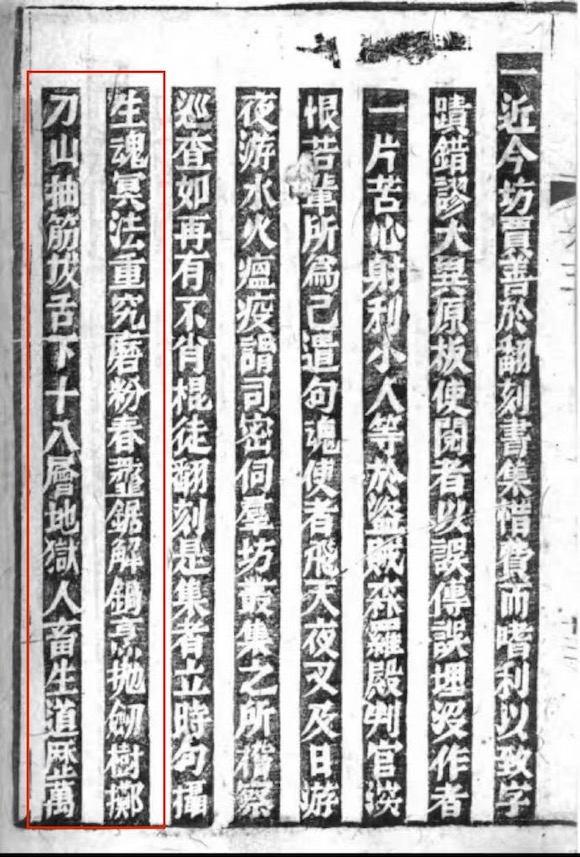 一近今坊賈善於翻刻書集惜費而嗜利以致字
蹟錯謬大異原板使閱者以誤傳誤埋沒作者
一片苦心射利小人等於盜賊森羅殿判官深
恨若輩所爲已遣句魂使者飛天夜叉及日游
夜游水火瘟疫諸司密伺羣坊叢集之所稽察
巡查如再有不肖棍徒翻刻是集者立時句攝
生魂冥法重究磨粉舂虀鋸解鍋烹拋劒樹擲
刀山抽筋拔舌下十八層地獄人畜生道歷萬